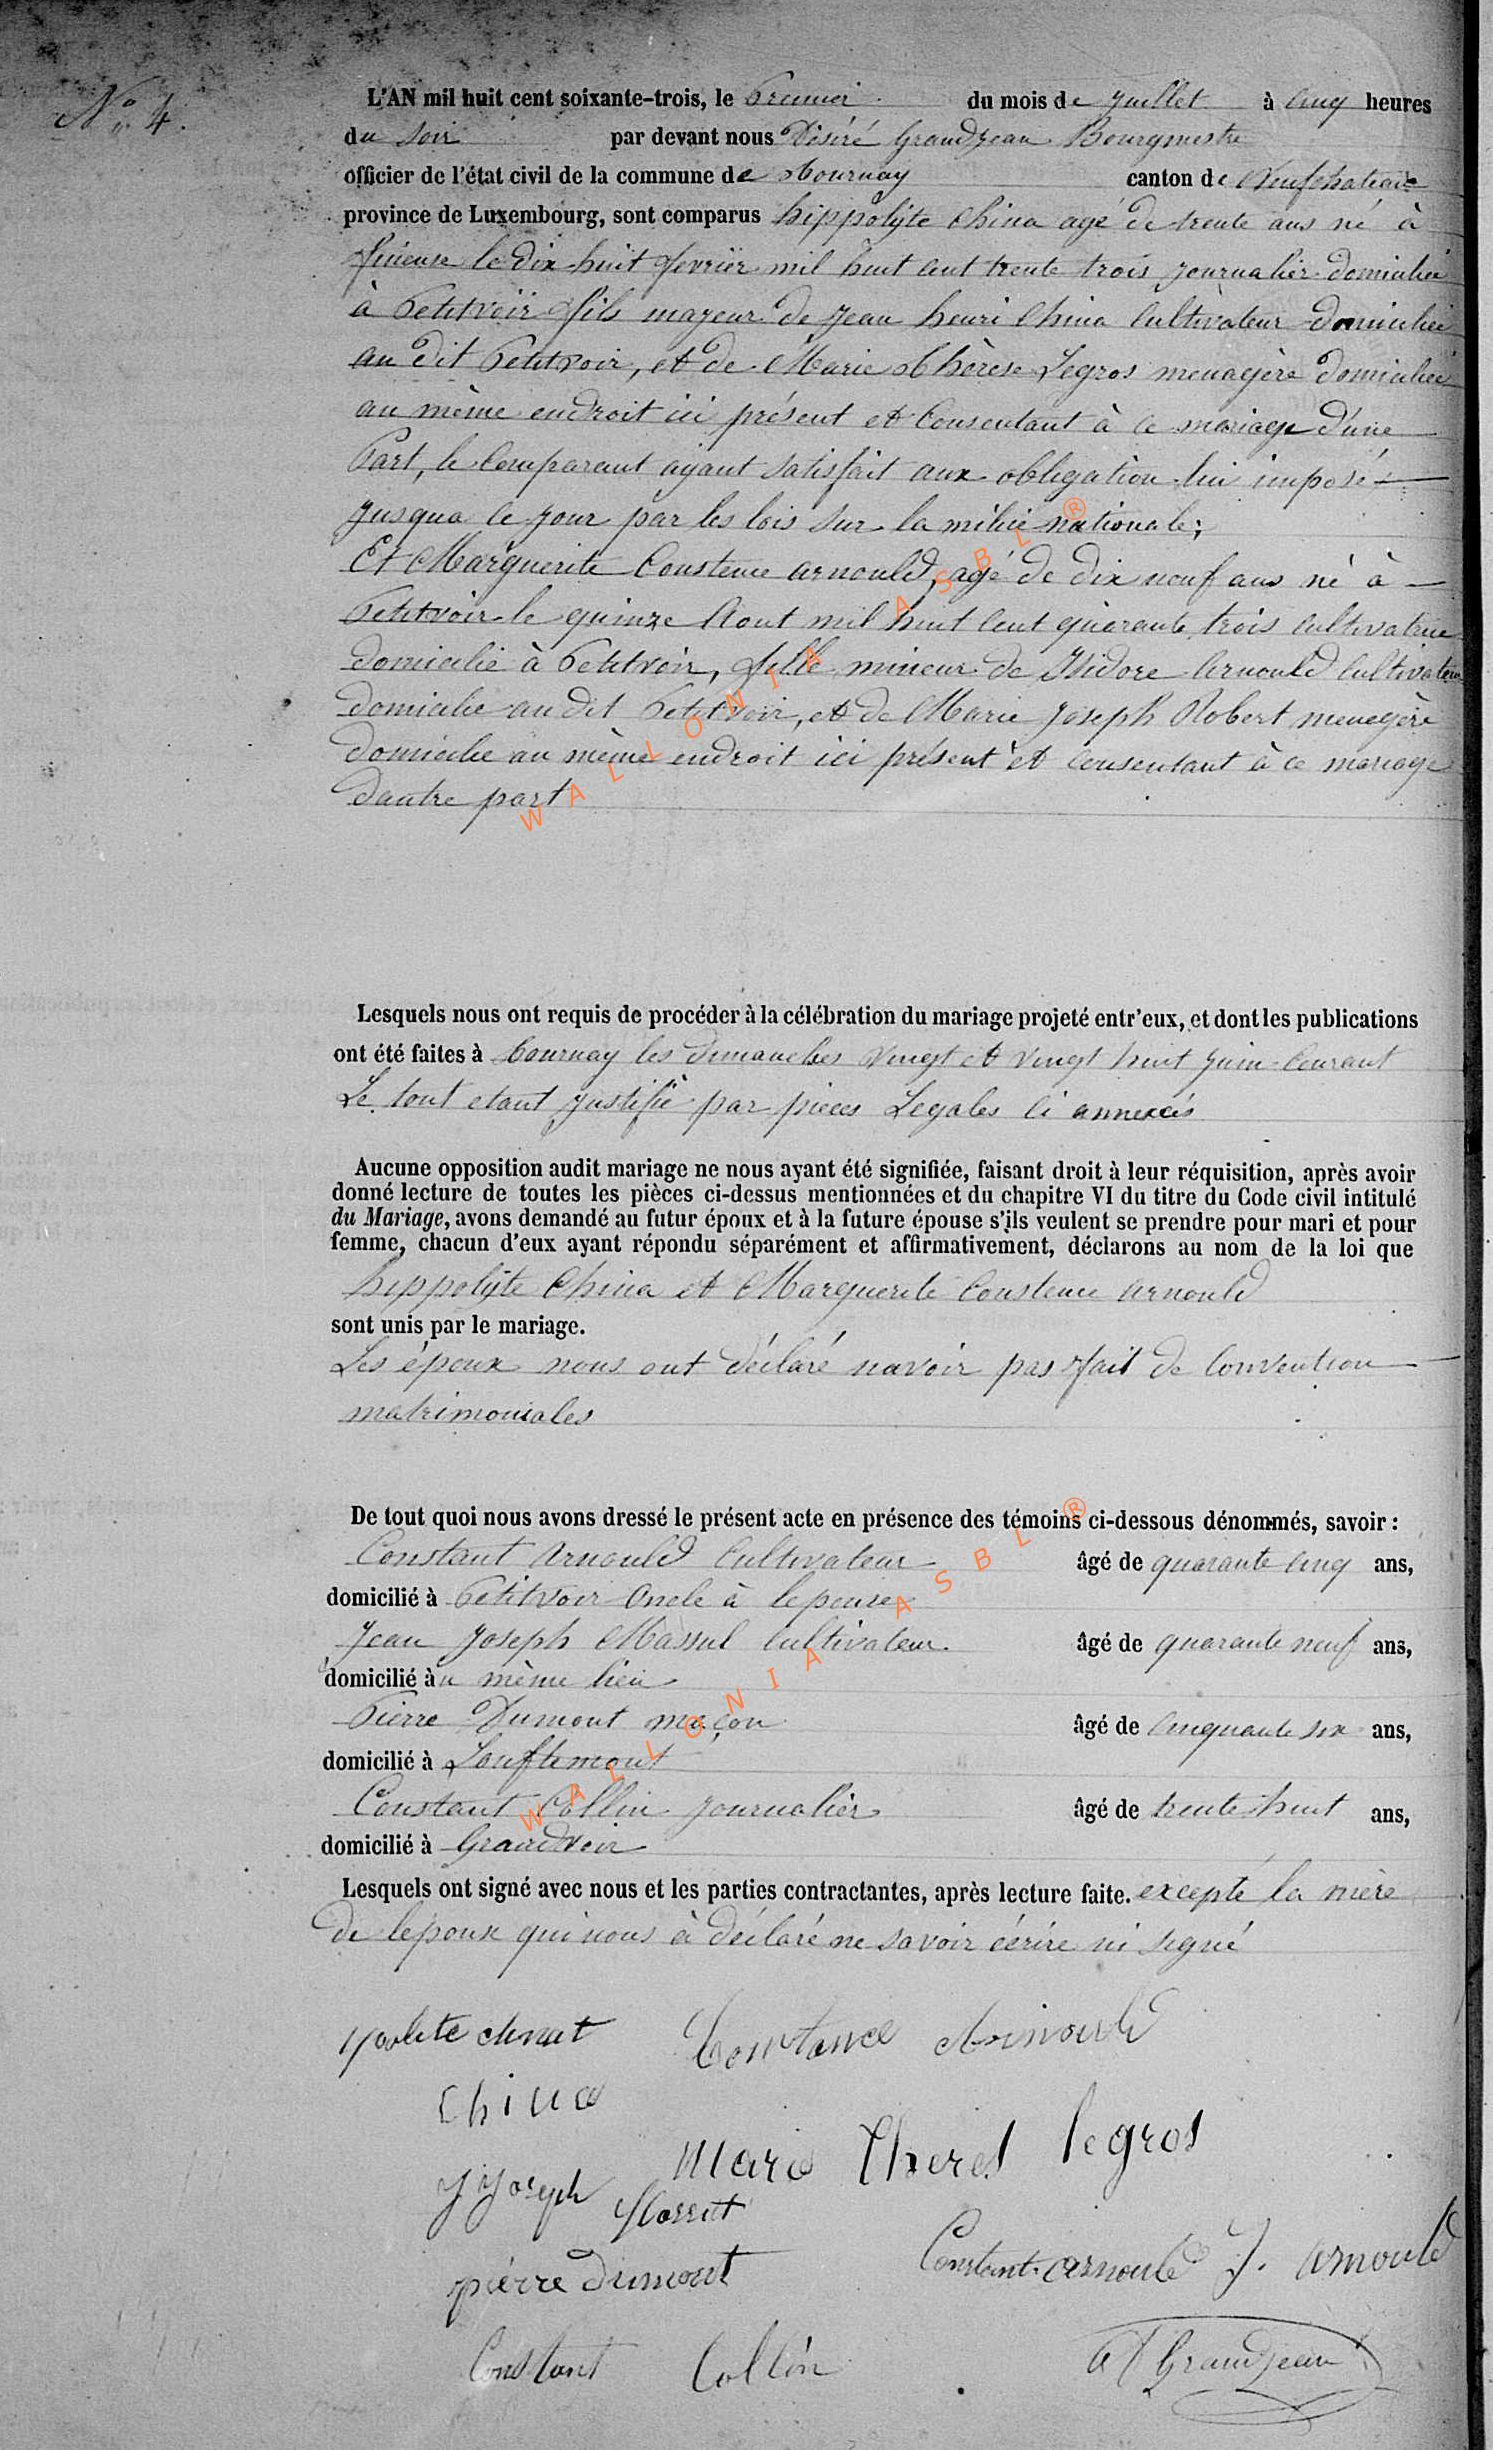 N° 4.
L'AN mil huit cent soixante-trois, le Premier du mois de juillet à cinq heures
du soir par devant nous Désiré Grandjean Bourgmestre
officier de l'état civil de la commune de Tournay canton de Neufchateau
province de Luxembourg, sont comparus hippolyte China agé de trente ans né à
le dix-huit fevrièr mil huit cent trente trois journalièr domicilié
à Petitvoir fils majeur de Jean henri China Cultivateur domicilié
au dit Petitvoir, et de Marie Thérèse Legros menagère domiciliée
au même endroit ici présent et Consentant à ce mariage d'une
Part, le Comparant ayant satisfait aux obligation lui imposé
jusqua ce jour par les lois sur la milice nationale;
Et Marguerite Constence arnould, agé de dix neuf ans né à
Petitvoir le quinze Aout mil huit cent quarante trois cultivatrice
domicilié à Petitvoir, fille mineur de Isidore Arnould Cultivateur
domicilié au dit Petitvoir, et de Marie Joseph Robert menegère
domicilié au même endroit ici présent et consentant à ce mariage
dautre part
Lesquels nous ont requis de procéder à la célébration du mariage projeté entr'eux, et dont les publications
ont été faites à Tournay les dimanches vingt et vingt huit juin Courant
Le tout etant justifié par pièces Legales ci annexés
Aucune opposition audit mariage ne nous ayant été signifiée, faisant droit à leur réquisition, après avoir
donné lecture de toutes les pièces ci-dessus mentionnées et du chapitre VI du titre du Code civil intitulé
du Mariage, avons demandé au futur époux et à la future épouse s'ils veulent se prendre pour mari et pour
femme, chacun d'eux ayant répondu séparément et affirmativement, déclarons au nom de la loi que
hippolyte China et Marguerite Constence arnould
sont unis par le mariage.
Les époux nous ont déclaré navoir pas fait de Convention
matrimoniales
De tout quoi nous avons dressé le présent acte en présence des témoins ci-dessous dénommés, savoir :
Constant Arnould Cultivateur âgé de quarante cinq ans,
domicilié à Petitvoir Oncle à lepouse
Jean Joseph Massul Cultivateur âgé de quarante neuf ans,
domicilié au même lieu
Pierre Dumont maçon âgé de cinquante six ans,
domicilié à
Constant Collin journalièr âgé de trente huit ans,
domicilié à Grandvoir
Lesquels ont signé avec nous et les parties contractantes, après lecture faite. excepté la mère
de lepoux qui nous à déclaré ne savoir écrire ni signé
Constance Arnould
China
Marie Theres legros
J Joseph
pierre Dumont
Constant arnould J. Arnould
Constant Collin
Grandjean
WALLONIA ASBL ®
WALLONIA ASBL ®